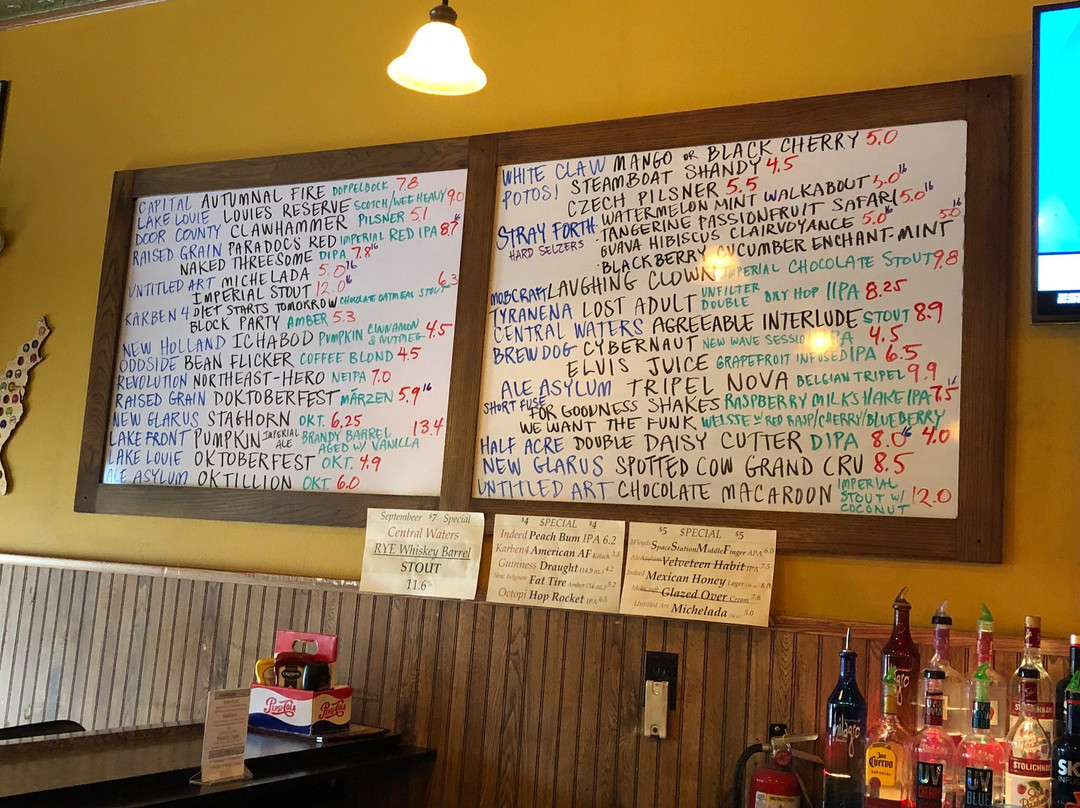 CAPITAL AUTUMNAL FIRE DOPPELBOCK 7.8
LAKE LOUIE LOUIES RESERVE SCOTCH/WEE HEAVY 9.0
DOOR COUNTY CLAWHAMMER PILSNER 5.1
RAISED GRAIN PARADOCS RED IMPERIAL RED IPA 8.7 16
NAKED THREESOME DIPA 7.8 16
UNTITLED ART MICHELADA 5.0 16
IMPERIAL STOUT 12.0 16
KARBEN 4 DIET STARTS TOMORROW CHOCOLATE OATMEAL STOUT 6.3
BLOCK PARTY AMBER 5.3
NEW HOLLAND ICHABOD PUMPKIN CINNAMON & NUTMEG 4.5
ODDSIDE BEAN FLICKER COFFEE BLOND 4.5
REVOLUTION NORTHEAST-HERO NEIPA 7.0
RAISED GRAIN DOKTOBERFEST MÄRZEN 5.9 16
NEW GLARUS STAGHORN OKT. 6.25
LAKEFRONT PUMPKIN IMPERIAL ALE BRANDY BARREL AGED W/ VANILLA 13.4
LAKE LOUIE OKTOBERFEST OKT. 4.9
ALE ASYLUM OKTILLION OKT. 6.0
WHITE CLAW MANGO OR BLACK CHERRY 5.0
POTOSI STEAMBOAT SHANDY 4.5
CZECH PILSNER 5.5
STRAY FORTH HARD SELZERS · WATERMELON MINT WALKABOUT 5.0 16
· TANGERINE PASSIONFRUIT SAFARI 5.0 16
· GUAVA HIBISCUS CLAIRVOYANCE 5.0 16
· BLACKBERRY CUCUMBER ENCHANT-MINT 5.0 16
MOBCRAFT LAUGHING CLOWN IMPERIAL CHOCOLATE STOUT 9.8
TYRANENA LOST ADULT UNFILTER DOUBLE DRY HOP IIPA 8.25
CENTRAL WATERS AGREEABLE INTERLUDE STOUT 8.9
BREWDOG CYBERNAUT NEW WAVE SESSION IPA 4.5
ELVIS JUICE GRAPEFRUIT INFUSED IPA 6.5
ALE ASYLUM TRIPEL NOVA BELGIAN TRIPEL 9.9
SHORT FUSE FOR GOODNESS SHAKES RASPBERRY MILKSHAKE IPA 7.5 16
WE WANT THE FUNK WEISSE W/ RED RASP/CHERRY/BLUEBERRY 4.0
HALF ACRE DOUBLE DAISY CUTTER DIPA 8.0 16
NEW GLARUS SPOTTED COW GRAND CRU 8.5
UNTITLED ART CHOCOLATE MACAROON IMPERIAL STOUT W/ COCONUT 12.0
Septembeer $7 Special
Central Waters
RYE Whiskey Barrel
STOUT
11.6%
$4 SPECIAL $4
Indeed Peach Bum IPA 6.2
Karben4 American AF Kölsch 3.8
Guinness Draught (14.9 oz.) 4.2
New Belgium Fat Tire Amber (16 oz.) 5.2
Octopi Hop Rocket IPA 6.5
$5 SPECIAL $5
SpaceStationMiddleFinger APA 6.0
Ale Asylum Velveteen Habit IPA 7.5
Indeed Mexican Honey Lager 8.0
MobCraft Glazed Over Cream 7.6
Untitled Art Michelada 5.0
PEPSI-COLA
PEPSI-COLA
milagro
milagro
Jose Cuervo
ESPECIAL
UV
CHERRY
UV
BLUE
STOLICHNAYA
STOLICHNAYA
SKYY